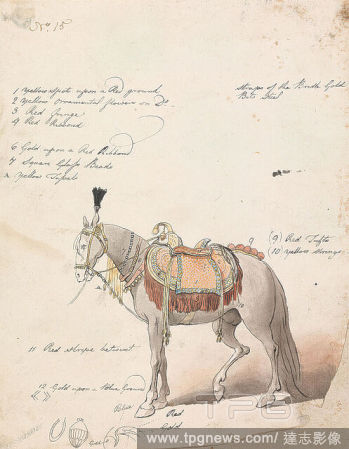 No. 15
1 Yellow spot upon a Red ground
2 Yellow ornamental flowers on Do.
3 Red Fringe
4 Red Ribbond
6 Gold upon a Red Ribbond
7 Square Glass Beads
Yellow Tassels
straps of the Bridle Gold
Bits Steel
9
(9) Red Tufts
(10) Yellow strings
11 Red stripe
12 Gold upon a Blue Ground
Blue
Red
Gold
TPG
www.tpgnews.com | 達志影像